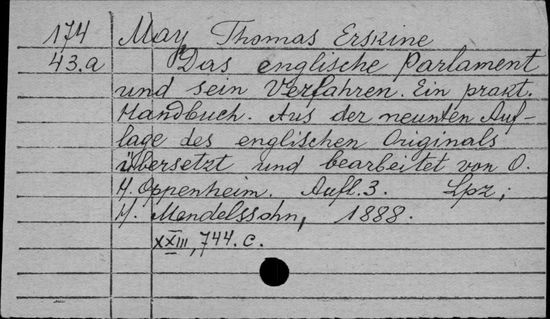 174 May Thomas Erskine
43.a Das englische Parlament
und sein Verfahren. Ein prakt.
Handbuch. Aus der neunten Auf-
lage des englischen Originals
übersetzt und bearbeitet von O.
H. Oppenheim. Aufl. 3. Lpz;
H. Mendelssohn, 1888.
XXIII, 744. c.